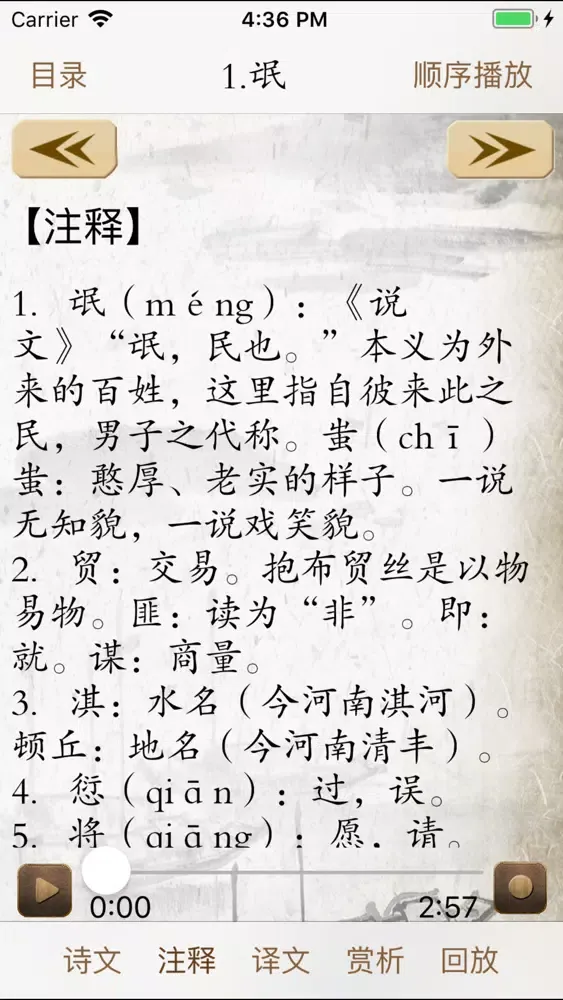 Carrier 4:36 PM
目录 1.氓 顺序播放
【注释】
1. 氓（méng）：《说
文》“氓，民也。”本义为外
来的百姓，这里指自彼来此之
民，男子之代称。蚩（chī）
蚩：憨厚、老实的样子。一说
无知貌，一说戏笑貌。
2. 贸：交易。抱布贸丝是以物
易物。匪：读为“非”。即：
就。谋：商量。
3. 淇：水名（今河南淇河）。
顿丘：地名（今河南清丰）。
4. 愆（qiān）：过，误。
5. 将（qiāng）：愿，请。
0:00 2:57
诗文 注释 译文 赏析 回放